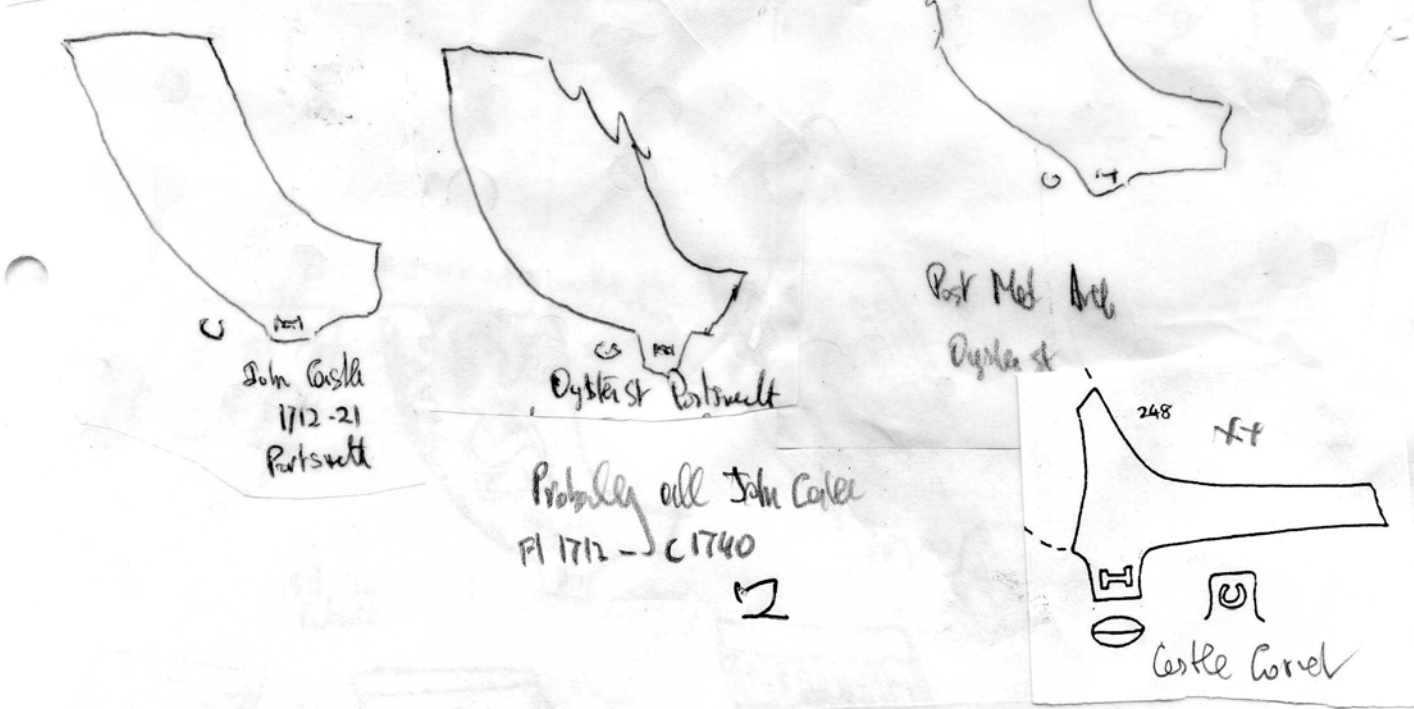 John Castle
1712-21
Portsmth
Oyster St Portsmouth
Post Med Arch
Oyster St
248
Probably all John Castle
Fl 1712 -- C1740
2
I
C
Castle Cornet